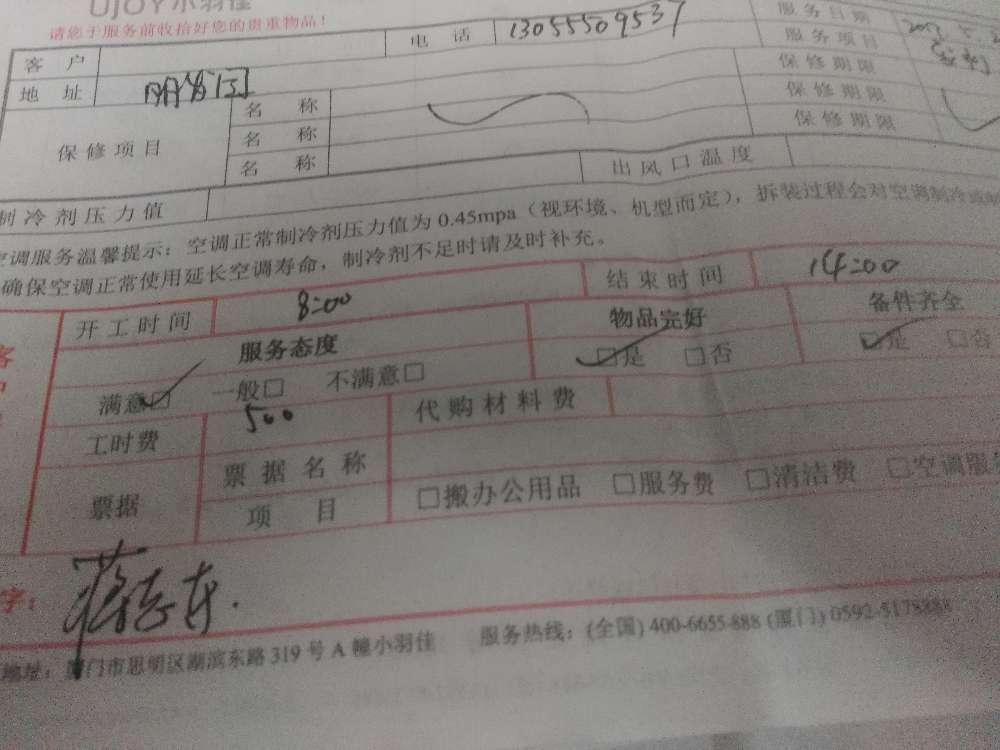 UJOY小羽佳
请您于服务前收拾好您的贵重物品！
客 户 电 话 13055509537 服务日期
地 址 服务项目
保修项目 名 称 保修期限
名 称 保修期限
名 称 保修期限
制冷剂压力值 出风口温度
空调服务温馨提示：空调正常制冷剂压力值为 0.45mpa（视环境、机型而定），拆装过程会对空调制冷
确保空调正常使用延长空调寿命，制冷剂不足时请及时补充。
开工时间 8:00 结束时间 14:00
服务态度 物品完好 备件齐全
满意☑ 一般□ 不满意□ ☑是 □否 ☑是 □否
工时费 500 代购材料费
票据 票据名称
项 目 □搬办公用品 □服务费 □清洁费 □空调服
字：
地址：厦门市思明区湖滨东路 319 号 A 幢小羽佳 服务热线：(全国) 400-6655-888 (厦门) 0592-5178888